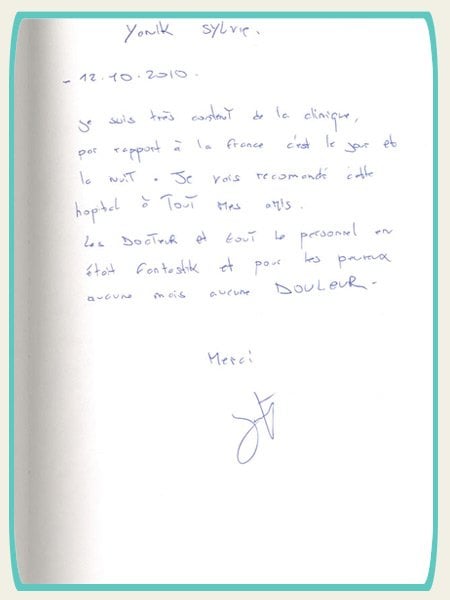 Yonik Sylvie.
- 12.10.2010.
je suis très content de la clinique,
par rapport à la france c'est le jour et
la nuit. Je vais recomandé cette
hopital à Tout mes amis.
Les Docteur et tout le personnel en
était fantastik et pour les peureux
aucune mais aucune DOULEUR.
Merci